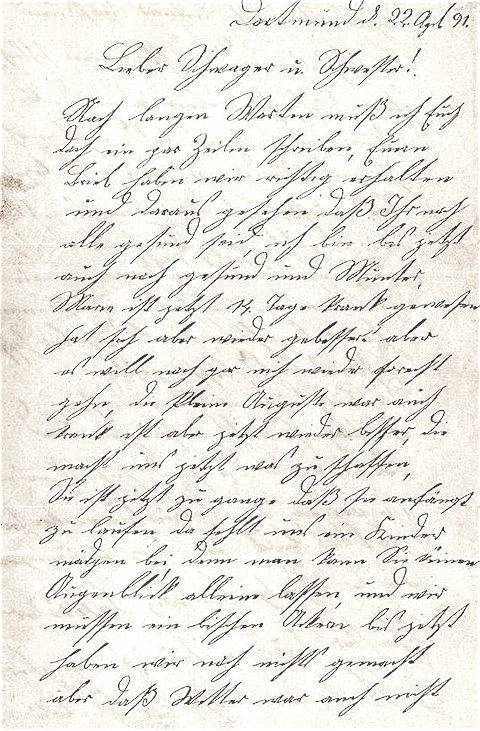 Dortmund d. 22. Apl 91.
Lieber Schwager u. Schwester!
Nach langen Warten muß ich Euch
doch ein par Zeilen schreiben, Euren
Brief haben wir richtig erhalten
und daraus gesehen daß Ihr noch
alle gesund seid, ich bin bis jetzt
auch noch gesund und Munter,
Mann ist jetzt 14. Tage krank gewesen
hat sich aber wieder gebessert aber
es will noch gar nich wieder
gehn, die kleine Auguste war auch
krank ist aber jetzt wieder besser, die
macht uns jetzt was zu schaffen,
Sie ist jetzt zu gange daß sie anfängt
zu laufen da fehlt uns ein Kinder
mädgen bei, denn man kann Sie keinen
Augenblick alleine lassen, und wir
müssen ein bischen Ackern bis jetzt
haben wir noch nichts gemacht
aber daß Wetter war auch nicht